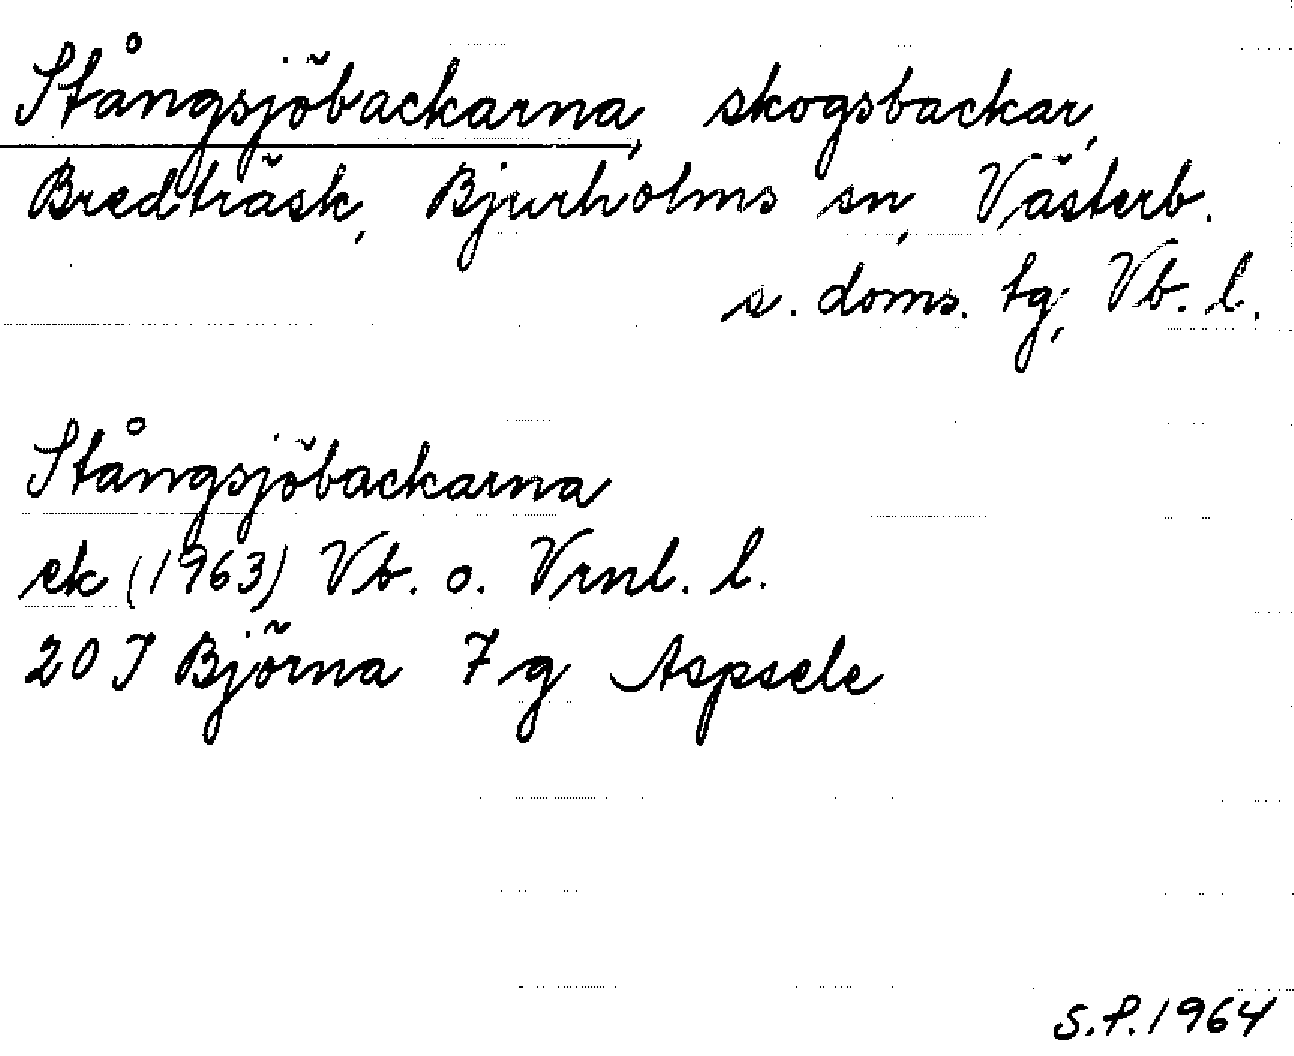 Stångsjöbackarna, skogsbackar,
Bredträsk, Bjurholms sn, Västerb.
s. doms. tg, Vb. l.
Stångsjöbackarna
ek (1963) Vb. o. Vrnl. l.
20 J Björna 7 g Aspsele
S.P. 1964